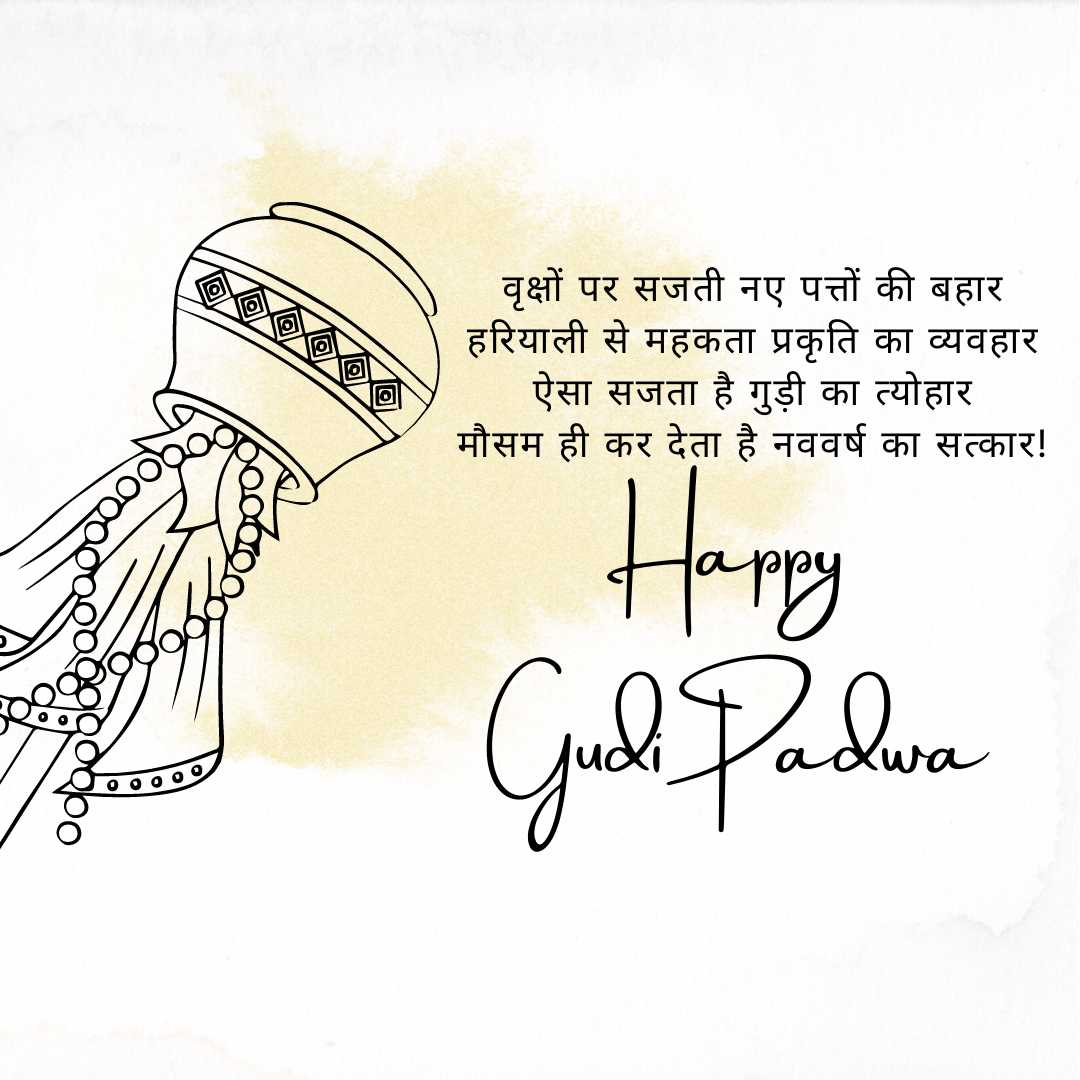 वृक्षों पर सजती नए पत्तों की बहार
हरियाली से महकता प्रकृति का व्यवहार
ऐसा सजता है गुड़ी का त्योहार
मौसम ही कर देता है नववर्ष का सत्कार!
Happy
Gudi Padwa